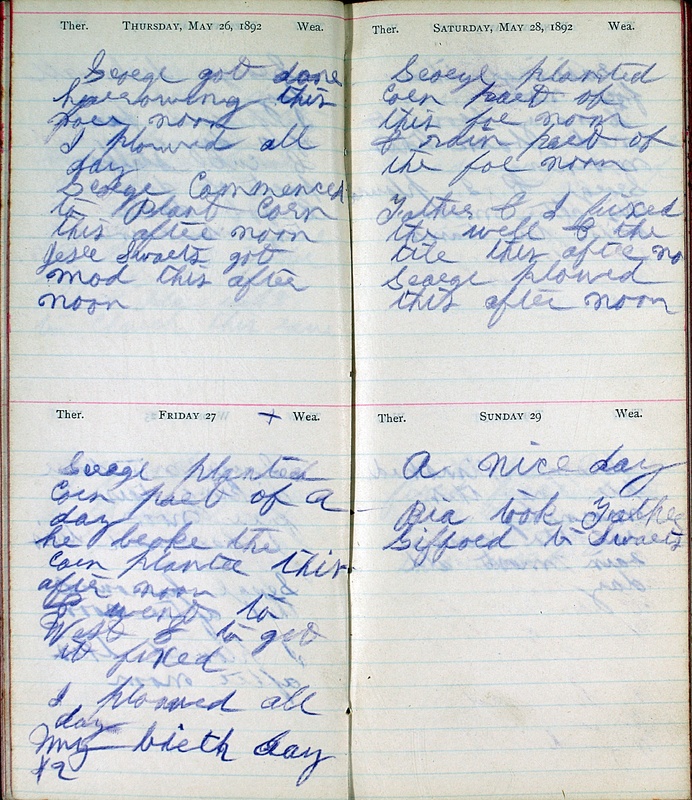 Ther. THURSDAY, MAY 26, 1892 Wea.
George got done
harrowing this
fore noon
I plowed all
day
George Commenced
to plant Corn
this after noon
Jesse Swarts got
mad this after
noon
Ther. FRIDAY 27 + Wea.
George planted
Corn part of a
day
he broke the
Corn planter this
after noon
& went to
West to get
it fixed
I plowed all
day
My birth day
Ther. SATURDAY, MAY 28, 1892 Wea.
George planted
Corn part of
this fore noon
part of
the fore noon
Father & I fixed
the well & the
tile this after no
George plowed
this after noon
Ther. SUNDAY 29 Wea.
A nice day
Ria took Father
Gifford to Swarts